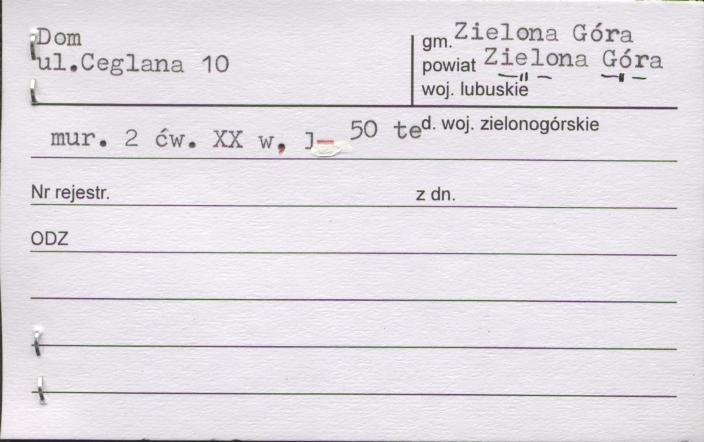 Dom
ul.Ceglana 10
gm. Zielona Góra
powiat Zielona Góra
woj. lubuskie
mur. 2 ćw. XX w, 50 te
d. woj. zielonogórskie
Nr rejestr.
z dn.
ODZ